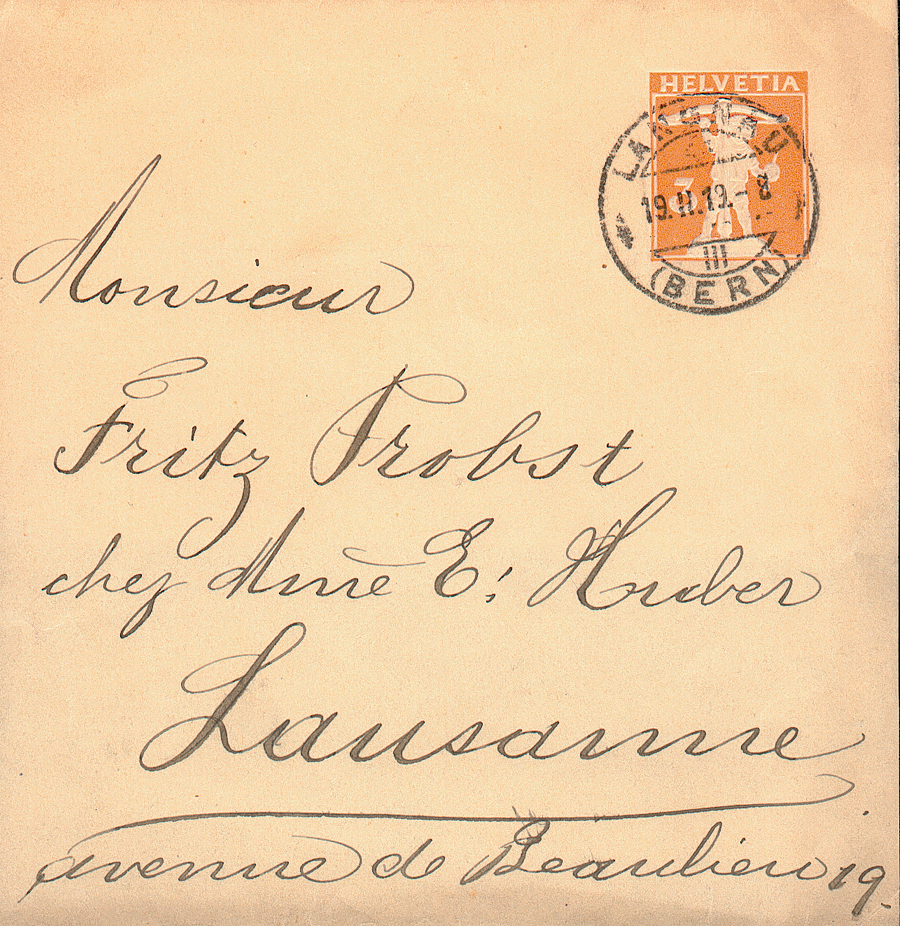 HELVETIA
LANGNAU
3
19.II.19.-8
III
(BERN)
Monsieur
Fritz Probst
chez Mme E. Huber
Lausanne
avenue de Beaulieu 19.